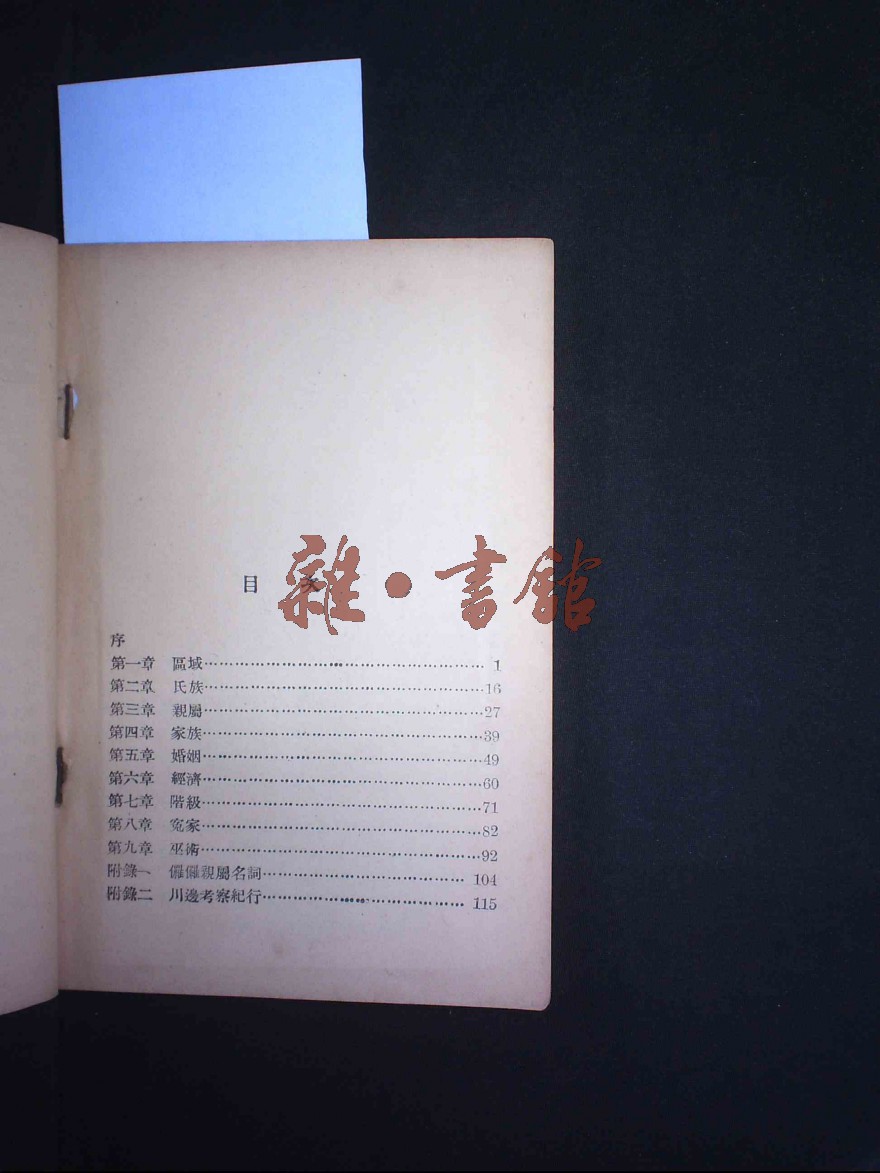 目 次
雜·書館
序
第一章 區域 1
第二章 氏族 16
第三章 親屬 27
第四章 家族 39
第五章 婚姻 49
第六章 經濟 60
第七章 階級 71
第八章 寃家 82
第九章 巫術 92
附錄一 儸儸親屬名詞 104
附錄二 川邊考察紀行 115